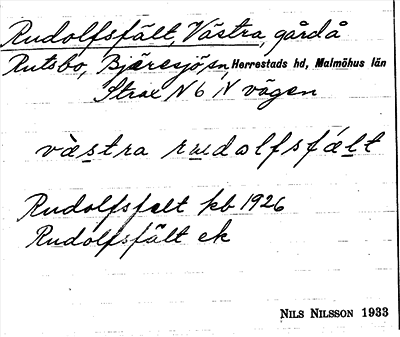 Rudolfsfält, Västra, gård å
Rutsbo, Bjäresjö sn, Herrestads hd, Malmöhus län
Strax N b N vägen
västra rudolfsfält
Rudolfsfelt kb 1926
Rudolfsfält ek
NILS NILSSON 1933